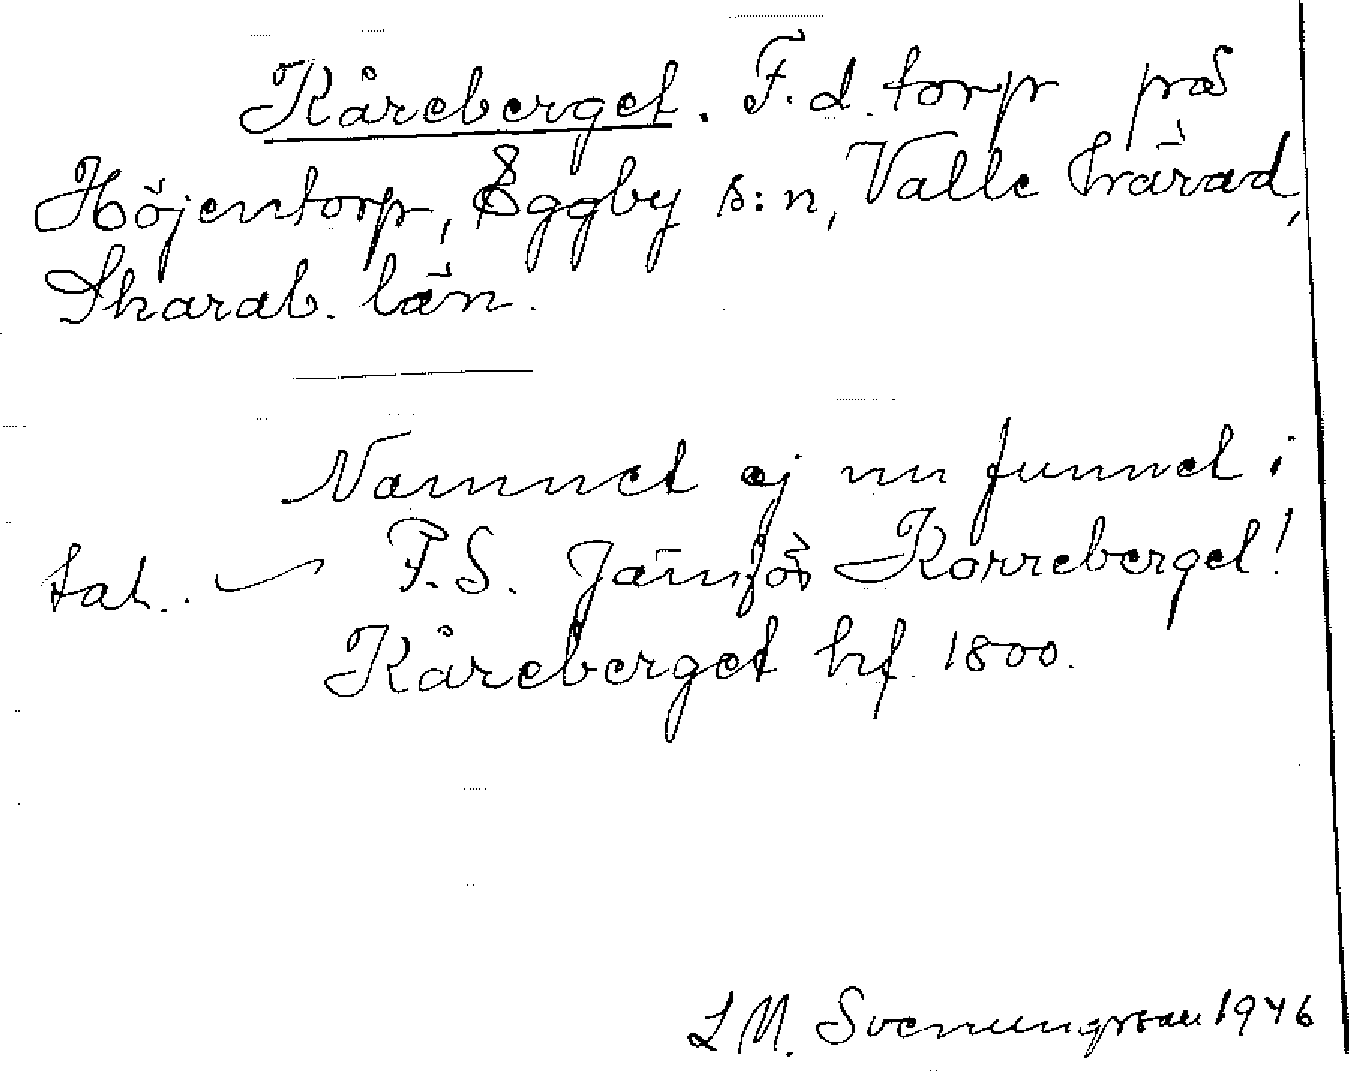 Kåreberget. F.d. torp på
Höjentorp, Eggby s:n, Valle härad,
Skarab. län.
Namnet ej nu funnet i
tal. — F.S. Jämför Korreberget!
Kåreberget hf. 1800.
L M. Svenungsson 1946